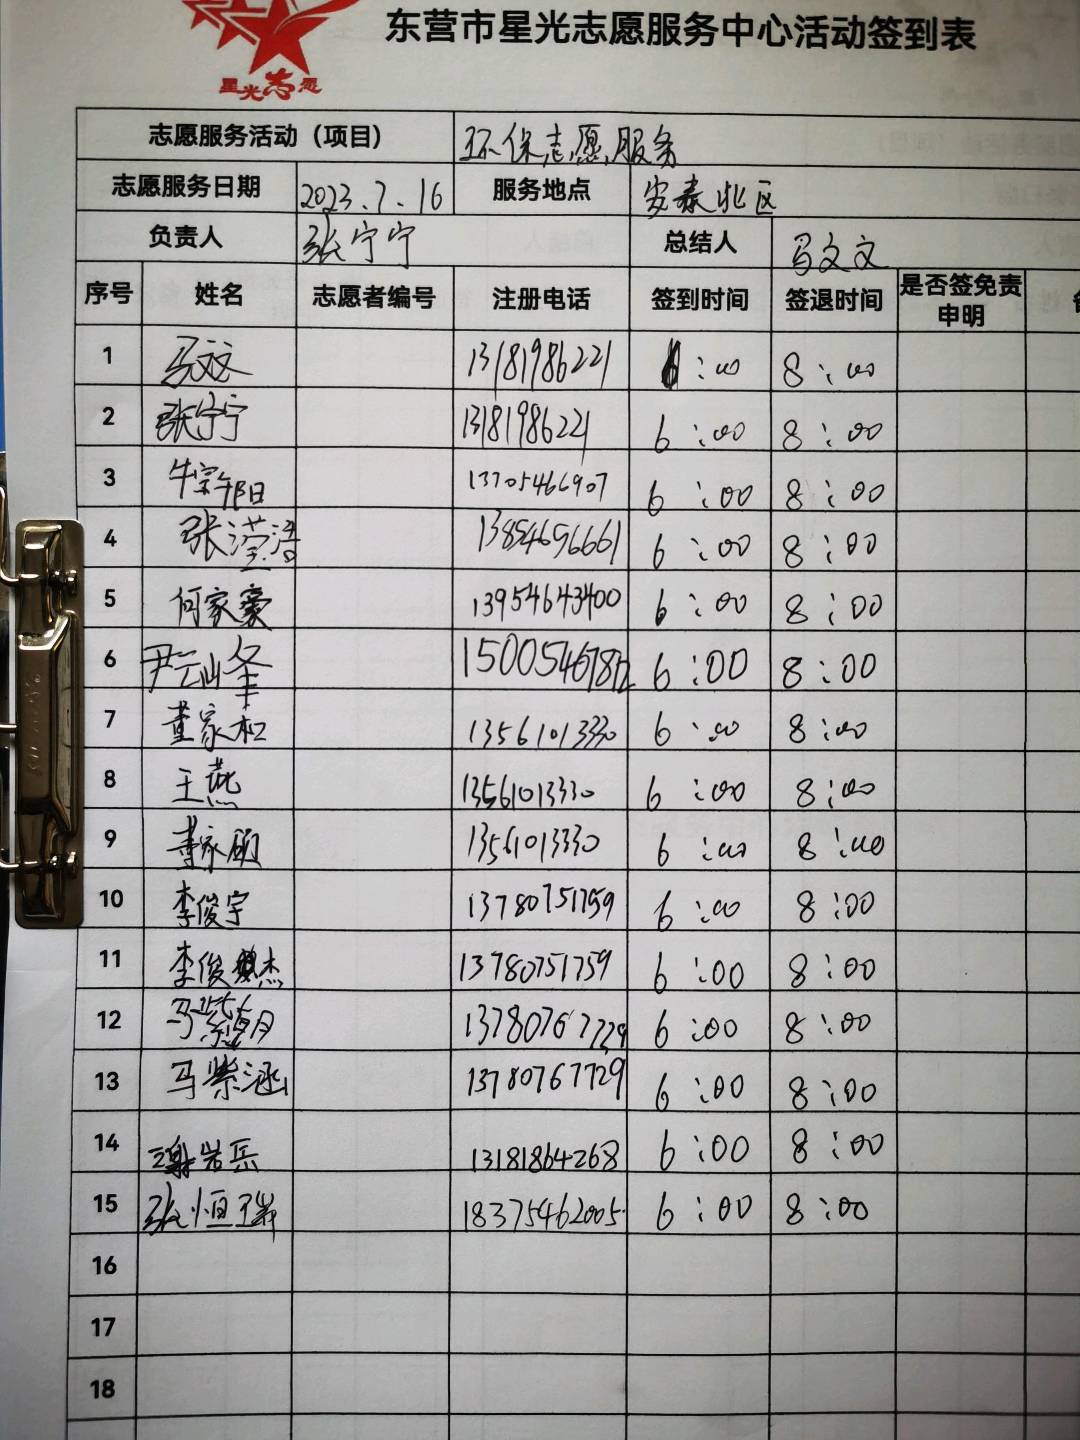 东营市星光志愿服务中心活动签到表
星光志愿
志愿服务活动（项目） 环保志愿服务
志愿服务日期 2023.7.16 服务地点 安泰北区
负责人 张宁宁 总结人 马文文
序号 姓名 志愿者编号 注册电话 签到时间 签退时间 是否签免责申明
1 马文文 13181986221 6:00 8:00
2 张宁宁 13181986221 6:00 8:00
3 牛宗阳 13705466907 6:00 8:00
4 张滢浩 13854656661 6:00 8:00
5 何家豪 13954643400 6:00 8:00
6 尹云峰 6:00 8:00
7 董家和 13561013330 6:00 8:00
8 王燕 13561013330 6:00 8:00
9 董家硕 13561013330 6:00 8:00
10 李俊宇 13780751759 6:00 8:00
11 李俊杰 13780751759 6:00 8:00
12 马 13780767729 6:00 8:00
13 马紫涵 13780767729 6:00 8:00
14 谢岩岳 13181864268 6:00 8:00
15 张恒瑞 18375462005 6:00 8:00
16
17
18